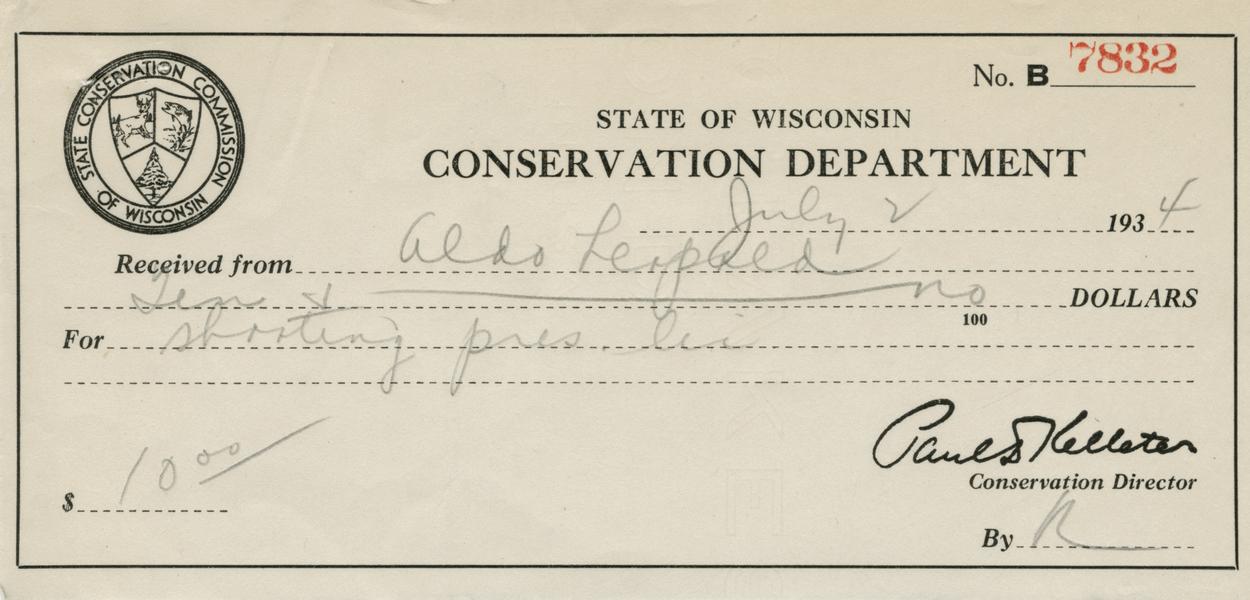 STATE CONSERVATION COMMISSION
OF WISCONSIN
No. B 7832
STATE OF WISCONSIN
CONSERVATION DEPARTMENT
July 2 1934
Received from Aldo Leopold
Ten & no DOLLARS
100
For shooting pres. lic
$ 10 00
Paul D Kelleter
Conservation Director
By R